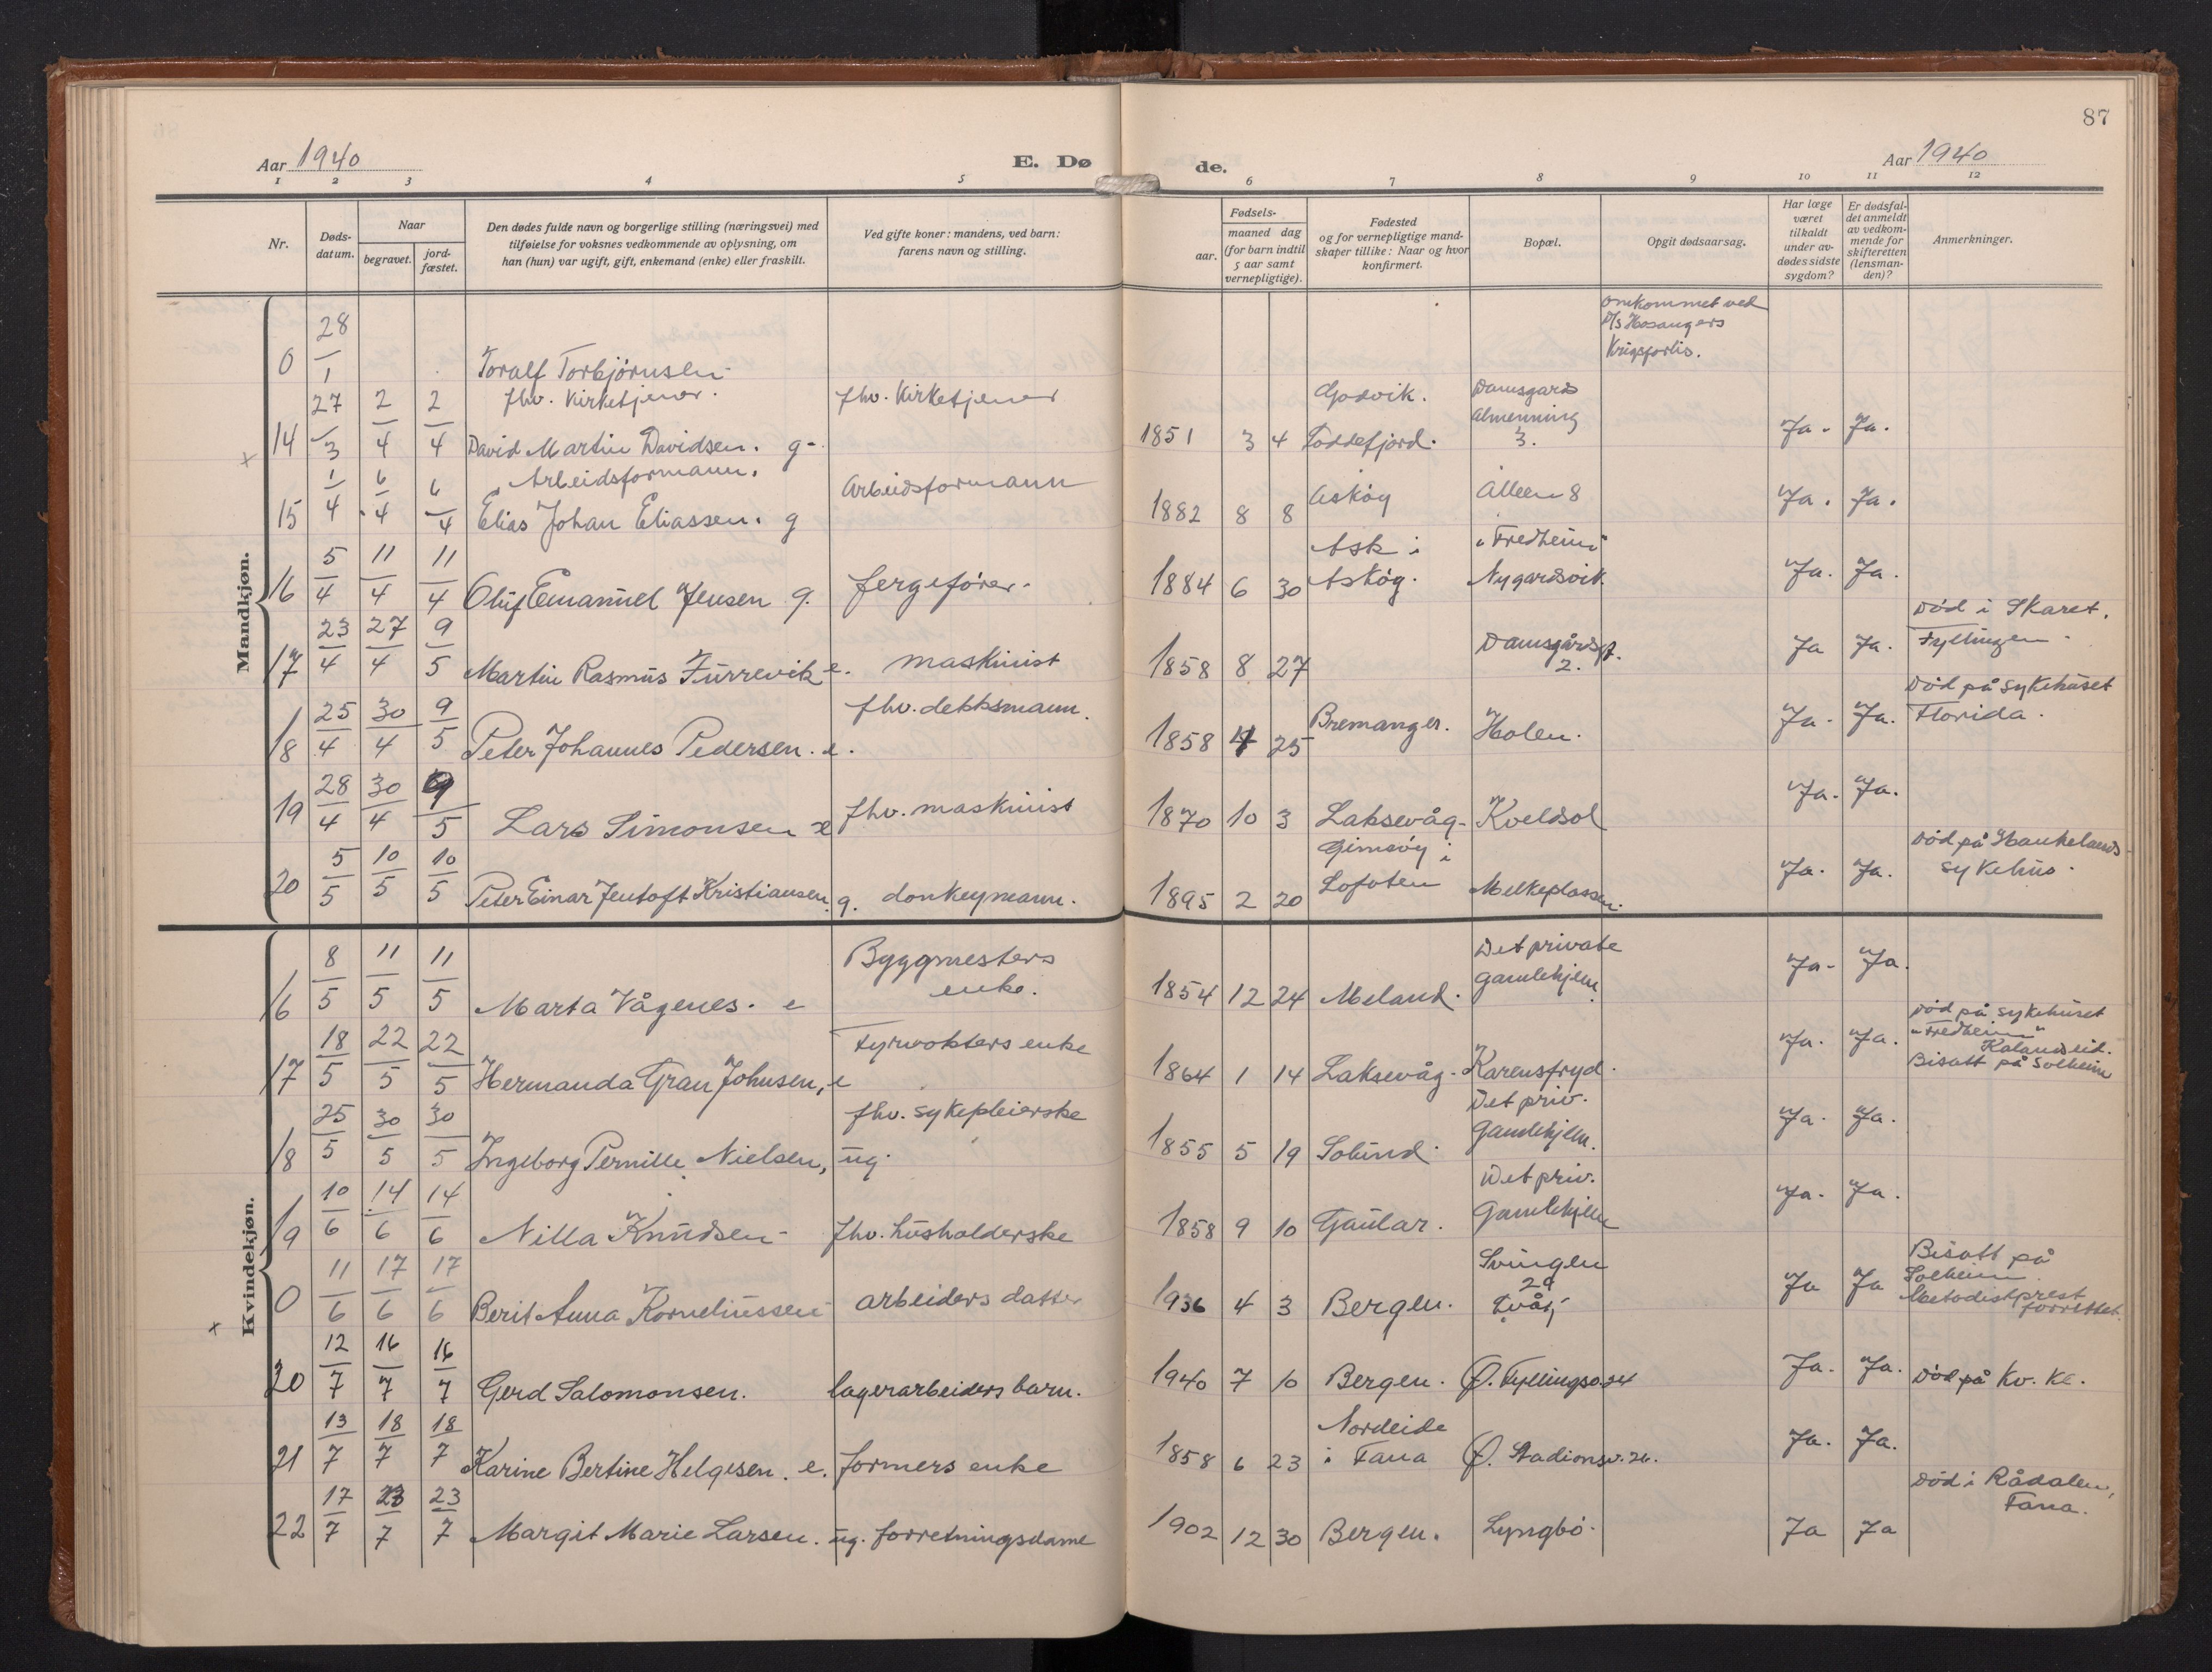 87
Aar 1940
E. Dø
de.
Aar 1940
1 2 3 4 5 6 7 8 9 10 11 12
Nr.
Døds-
datum.
Naar
begravet.
jord-
fæstet.
Den dødes fulde navn og borgerlige stilling (næringsvei) med
tilføielse for voksnes vedkommende av oplysning, om
han (hun) var ugift, gift, enkemand (enke) eller fraskilt.
Ved gifte koner: mandens, ved barn:
farens navn og stilling.
Fødsels-
aar.
maaned dag
(for barn indtil
5 aar samt
vernepligtige).
Fødested
og for vernepligtige mand-
skaper tillike: Naar og hvor
konfirmert.
Bopæl.
Opgit dødsaarsag.
Har læge
været
tilkaldt
under av-
dødes sidste
sygdom?
Er dødsfal-
det anmeldt
av vedkom-
mende for
skifteretten
(lensman-
den)?
Anmerkninger.
Mandkjøn.
0 28/1 Toralf Torbjørnsen
Omkommet ved
D/S Hosangers
Krigsforlis.
fhv. Kirketjener. fhv. Kirketjener Godvik. Damsgards
Almenning
x 14 27/3 2/4 2/4 David Martin Davidsen. g. 1851 3 4 Loddefjord. 3. Ja. Ja.
Arbeidsformann. Arbeidsformann
15 1/4 6/4 6/4 Elias Johan Eliassen. g 1882 8 8 Askøy Alleen 8 Ja. Ja.
Ask i "Fredheim"
16 5/4 11/4 11/4 Oluf Emanuel Jensen g. fergefører. 1884 6 30 Askøy. Nygardsvik. Ja. Ja.
17 23/4 27/4 9/5 Martin Rasmus Furrevik e. maskinist 1858 8 27 Damsgårdsgt.
2. Ja Ja. Død i Skaret.
Fyllingen.
18 25/4 30/4 9/5 Peter Johannes Pedersen. e. fhv. dekksmann. 1858 4 25 Bremanger. Holen. Ja. Ja. Død på sykehuset
Florida.
19 28/4 30/4 9/5 Lars Simonsen e fhv. maskinist 1870 10 3 Laksevåg. Kveldsol Ja. Ja.
Gimsøy i
20 5/5 10/5 10/5 Peter Einar Jentoft Kristiansen. g. donkeymann. 1895 2 20 Lofoten Melkeplassen. Ja. Ja. Død på Haukelands
sykehus.
Kvindekjøn.
Byggmesters
enke. Det private
16 8/5 11/5 11/5 Marta Vågenes. e 1854 12 24 Meland. gamlehjem. Ja. Ja.
17 18/5 22/5 22/5 Hermanda Gran Johnsen, e Fyrvokters enke 1864 1 14 Laksevåg. Karensfryd. Ja. Ja. Død på sykehuset
"Fredheim"
Kalandseid.
Bisatt på Solheim
Det priv.
18 25/5 30/5 30/5 Ingeborg Pernille Nielsen, ug. fhv. sykepleierske 1855 5 19 Solund. Gamlehjem. Ja. Ja.
Det priv.
19 10/6 14/6 14/6 Nilla Knudsen fhv. husholderske 1858 9 10 Gaular. Gamlehjem Ja. Ja.
x 0 11/6 17/6 17/6 Berit Anna Korneliussen arbeiders datter 1936 4 3 Bergen. Svingen
29
Ja Ja Bisatt på
Solheim.
Metodistprest
forrettet.
20 12/7 16/7 16/7 Gerd Salomonsen. lagerarbeiders barn. 1940 7 10 Bergen. Ø. Fyllingsv. 34 Ja. Ja. Død på Kv. Kl.
Nordeide
21 13/7 18/7 18/7 Karine Bertine Helgesen. e. formers enke 1858 6 23 i Fana Ø. Stadionsv. 26. Ja. Ja.
22 17/7 23/7 23/7 Margit Marie Larsen. ug. forretningsdame 1902 12 30 Bergen. Lyngbø. Ja Ja Død i Rådalen,
Fana.